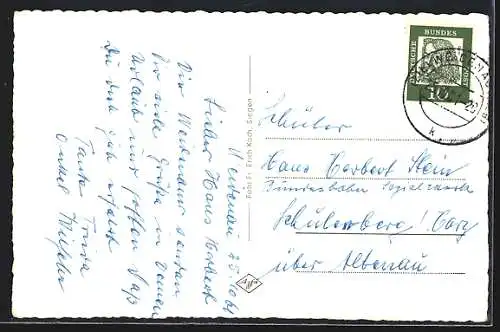 Weidenau 25.
Lieber Hans Herbert
Wir Weidenauer senden
Dir viele Grüße in Deinen
Urlaub und hoffen daß
Du Dich gut erholst
Tante
Onkel
Foto Fr. Erich Koch, Siegen
DEUTSCHE BUNDESPOST
10
Schüler
Hans Herbert Stein
Bundesbahn Sozialwerk
Schulenberg / Harz
über Altenau